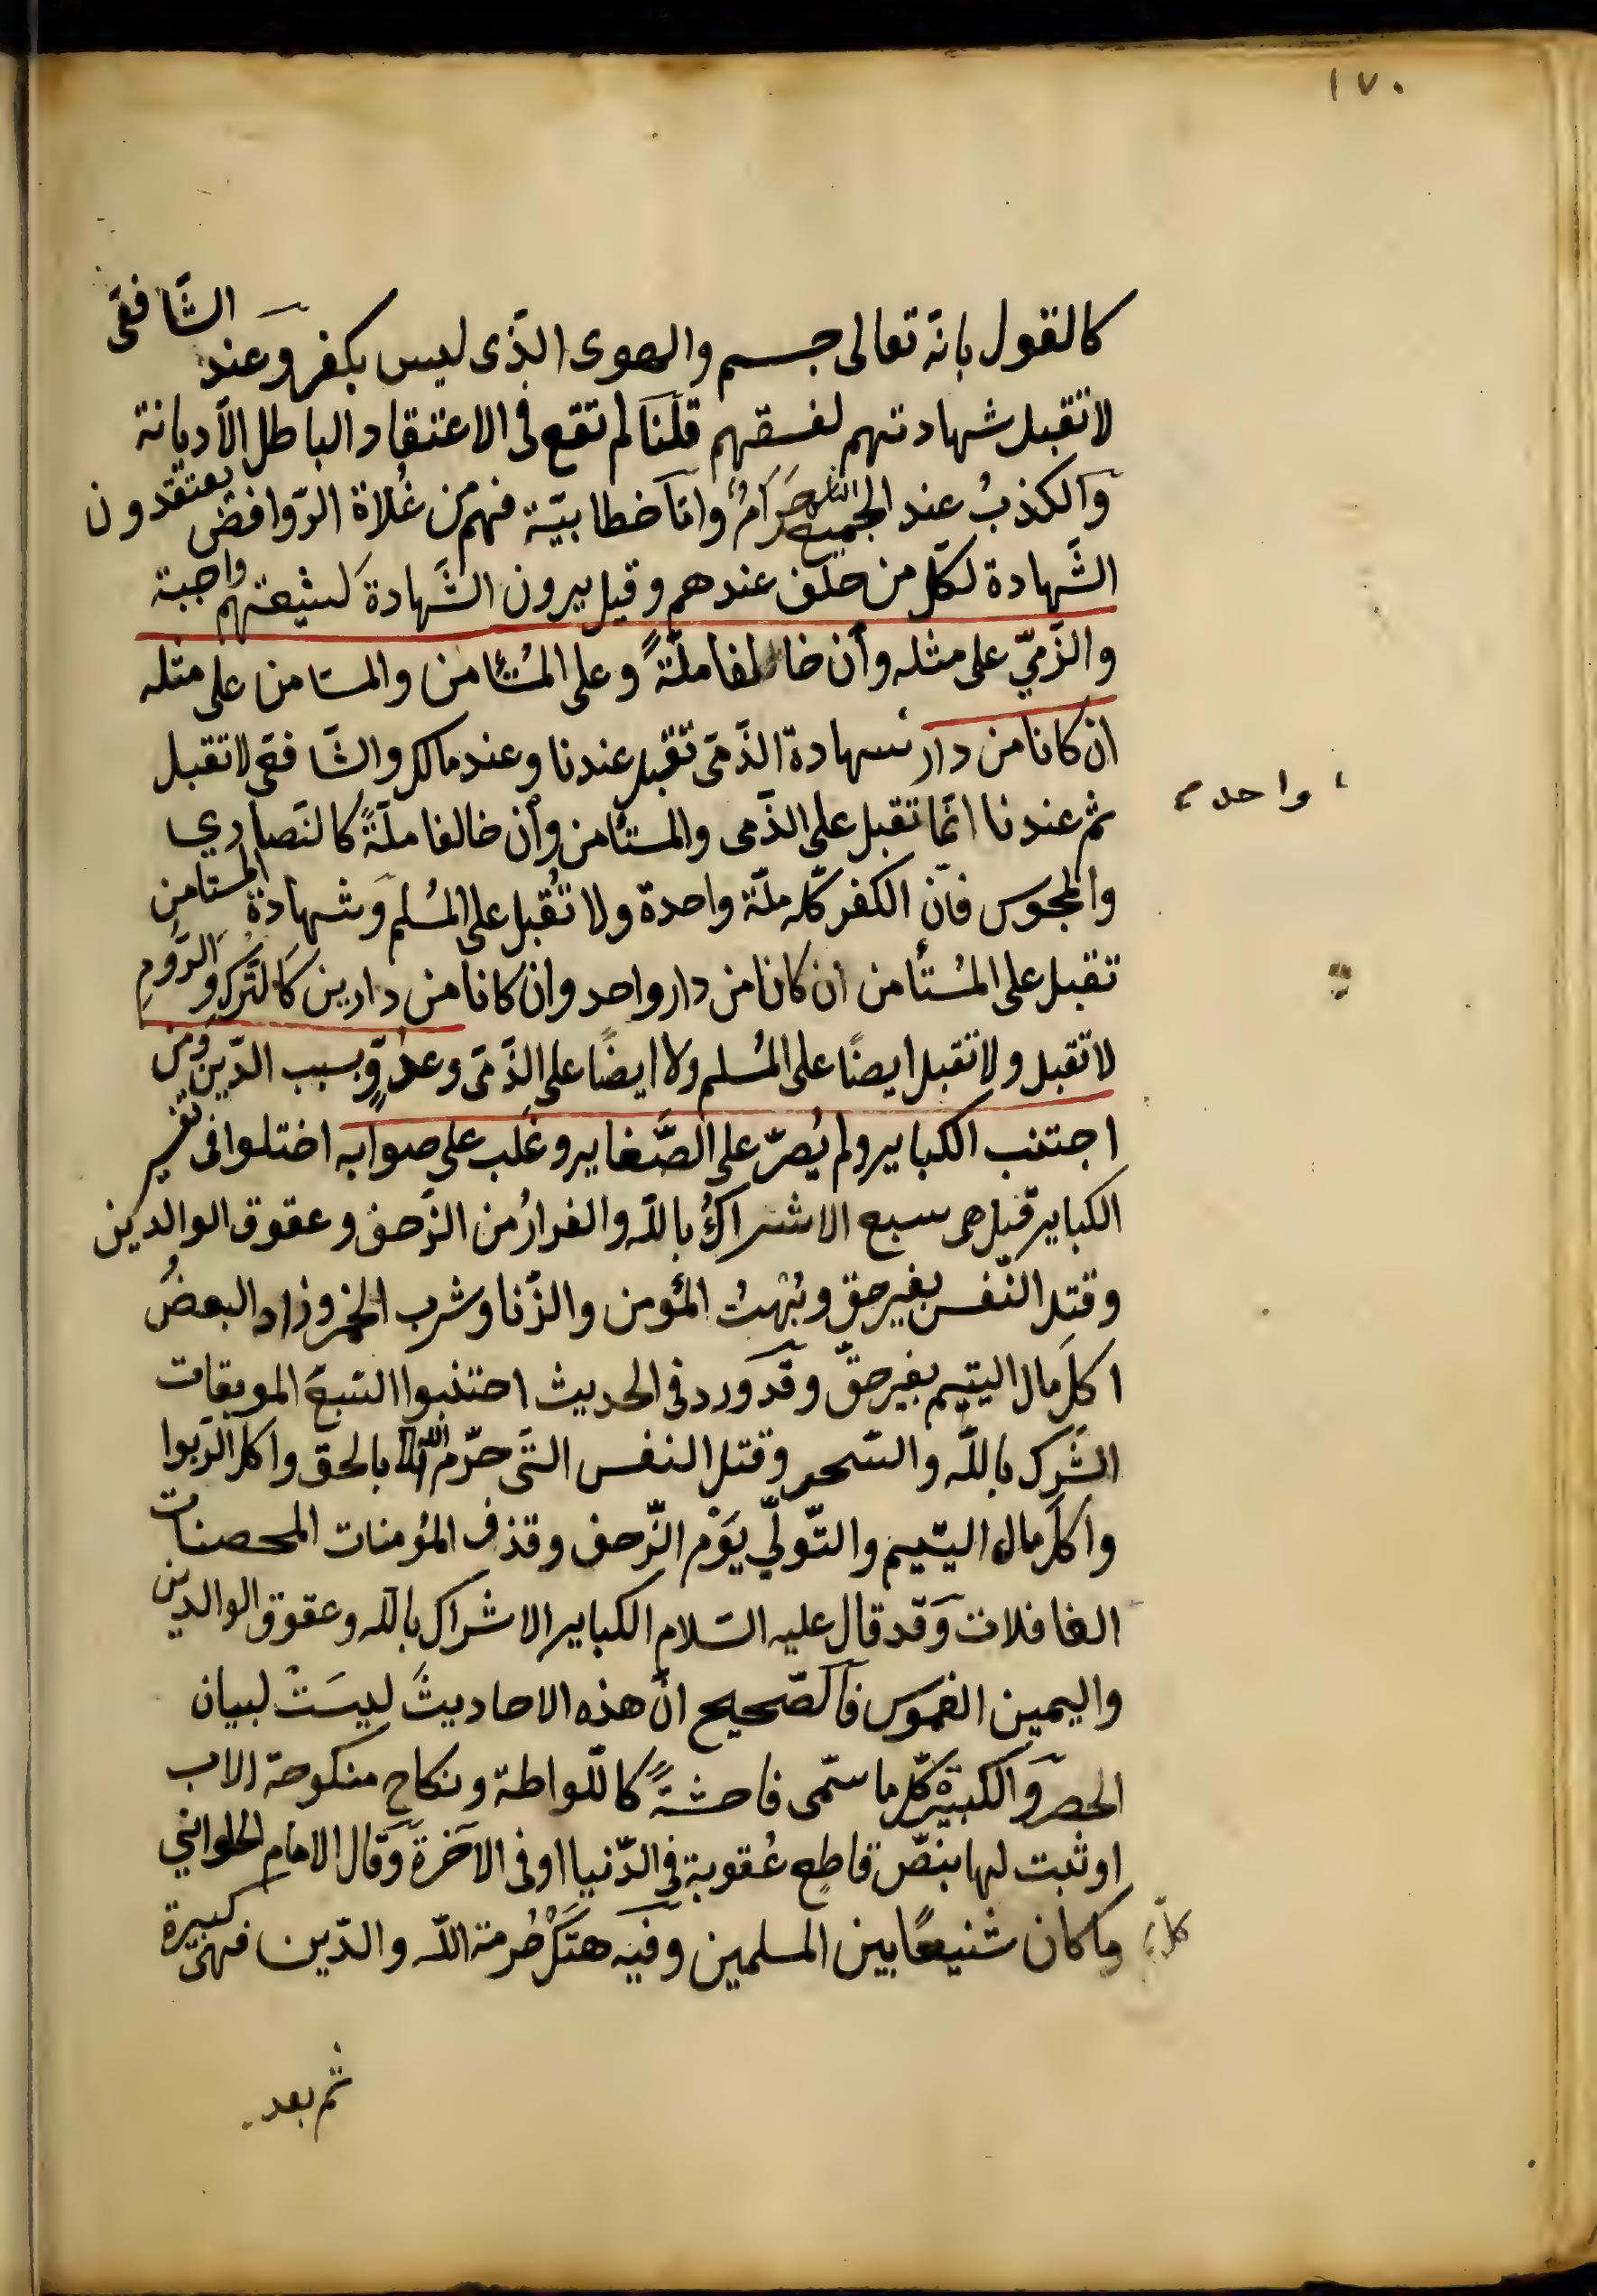 ١٧٠
كالقول بانّه تعالى جسم والهوى الذّى ليس بكفر وعند الشّافعى
لا تقبل شهادتهم لفسقهم قلنا لم تقع فى الاعتقاد الباطل الّا ديانة
والكذبُ عند الجميع حَرَامٌ وامّا خطابيّة فهم من غُلاة الرّوافض يعتقدون
الشّهادة لكلّ من حلف عندهم وقيل يرون الشّهادة لشيعتهم واجبة
والذّمّيّ على مثله وأن خالفا ملّةً وعلى المُستأمن والمستامن على مثله
ان كانا من دار شهادة الذّمّى تقبل عندنا وعند مالك والشّافعى لا تقبل
واحد
ثم عندنا انّما تقبل على الذّمى والمستأمن وأن خالفا ملّةً كالنّصاري
والمجوس فانّ الكفر كلّه ملّة واحدة ولا تُقبل على المُسلم وشهادة المستامن
تقبل على المُستأمن ان كانا من دار واحد وان كانا من دارين كالتّرك والرّومِ
لا تقبل ولا تقبل ايضًا على المُسلم ولا ايضًا على الذّمّى وعدوٍّ بسبب الدّين ومن
اجتنب الكباير ولم يُصرّ على الصّغاير وغلب على صوابه اختلوا فى تفسير
الكباير قيل هى سبع الاشراكُ بالله والفرارُ من الزّحف وعقوق الوالدين
وقتل النّفس بغير حق وبُهْتُ المؤمن والزّنا وشرب الخمر وزاد البعضُ
اكلَ مال اليتيم بغير حقّ وقد ورد فى الحديث اجتنبوا السّبعَ الموبقات
الشّرك بالله والسّحر وقتل النفس التّى حرّم الله الّا بالحق واكل الرّبوا
واكل مال اليتيم والتّولّي يَوْم الزّحف وقذف المؤمنات المحصنات
الغافلات وقد قال عليه السّلام الكباير الاشراك بالله وعقوق الوالدين
واليمين الغموس فالصّحيح انّ هذه الاحاديثَ ليسَتْ لبيان
الحصر والكبيرة كلّ ما سمّى فاحشةً كاللّواطة ونكاح منكوحة الاب
او ثبت لها بنصّ قاطع عُقوبة فى الدّنيا او فى الآخرة وقال الامام الحلوانّي
كلّ
ما كان شنيعًا بين المسلمين وفيه هتكُ حُرمة الله والدّين فهى كبيرة
ثم بعد